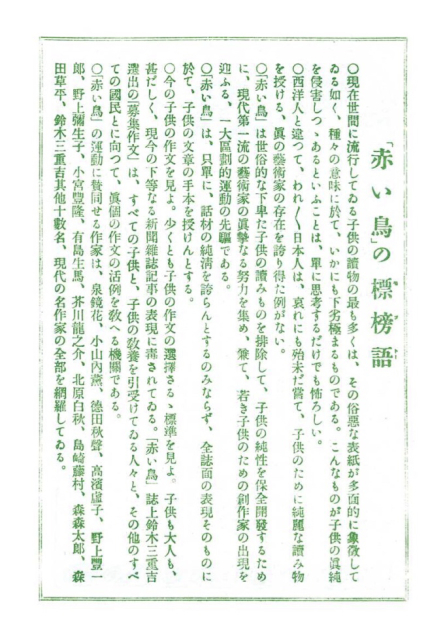 「赤い鳥」の標榜語
○現在世間に流行してゐる子供の讀物の最も多くは、その俗悪な表紙が多面的に象徴して
ゐる如く、種々の意味に於て、いかにも下劣極まるものである。こんなものが子供の眞純
を侵害しつゝあるといふことは、單に思考するだけでも怖ろしい。
○西洋人と違つて、われ〳〵日本人は、哀れにも殆未だ嘗て、子供のために純麗な讀み物
を授ける、眞の藝術家の存在を誇り得た例がない。
○「赤い鳥」は世俗的な下卑た子供の讀みものを排除して、子供の純性を保全開發するため
に、現代第一流の藝術家の眞摯なる努力を集め、兼て、若き子供のための創作家の出現を
迎ふる、一大區劃的運動の先驅である。
○「赤い鳥」は、只單に、話材の純清を誇らんとするのみならず、全誌面の表現そのものに
於て、子供の文章の手本を授けんとする。
○今の子供の作文を見よ。少くとも子供の作文の選擇さるゝ標準を見よ。子供も大人も、
甚だしく、現今の下等なる新聞雜誌記事の表現に毒されてゐる。「赤い鳥」誌上鈴木三重吉
選出の「募集作文」は、すべての子供と、子供の敎養を引受けてゐる人々と、その他のすべ
ての國民とに向つて、眞個の作文の活例を敎へる機關である。
○「赤い鳥」の運動に賛同せる作家は、泉鏡花、小山內薰、德田秋聲、高濱虛子、野上豐一
郎、野上彌生子、小宮豐隆、有島生馬、芥川龍之介、北原白秋、島崎藤村、森森太郎、森
田草平、鈴木三重吉其他十數名、現代の名作家の全部を網羅してゐる。